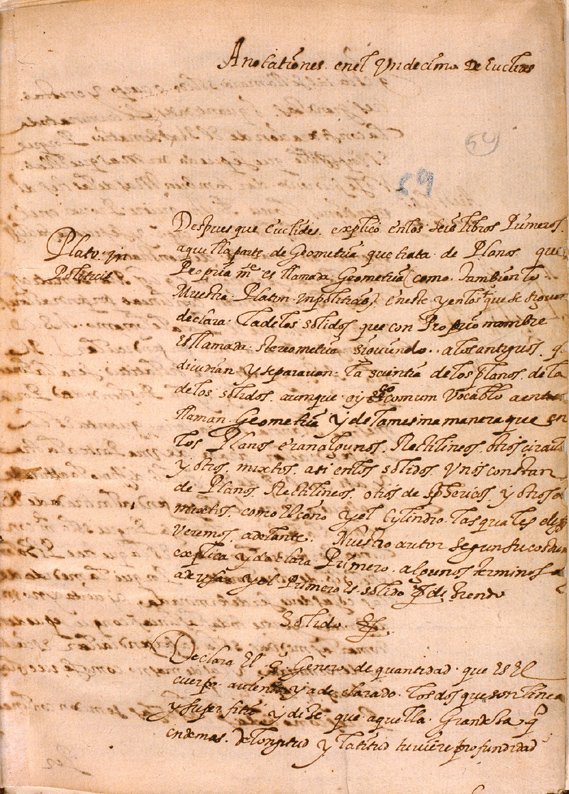 Anotationes en el Undecimo de Euclides
54
59
Despues que Euclides explicó en los seis libros Primeros
Plato in
Politicis
aquella parte de Geometria que trata de Planos que
Propria mte es llamada Geometria como tambien lo
Muestra Platon in politicis, en este y en los que se siguen
declara la de los solidos que con Proprio nombre
es llamada stereometria siguiendo a los antiguos q
dividian y separavan la scientia de los Planos de la
de los solidos aunque oy con comun vocablo
llaman Geometria y de la mesma manera que en
los Planos eran algunos Rectilineos otros circula
y otros mixtos asi en los solidos unos constan
de Planos Rectilineos otros de sphericos y otros
mixtos como el cono y el cylindro los quales
veremos adelante. Nuestro autor segun su costum
explica y declara Primero algunos terminos
y el Primero es solido
Solido
Declara el 3 Genero de quantidad que es el
cuerpo aviendo ya declarado los dos que son linea
y superficie y dize que aquella Grandeza q
en demas de longitud y latitud tuviere profundidad